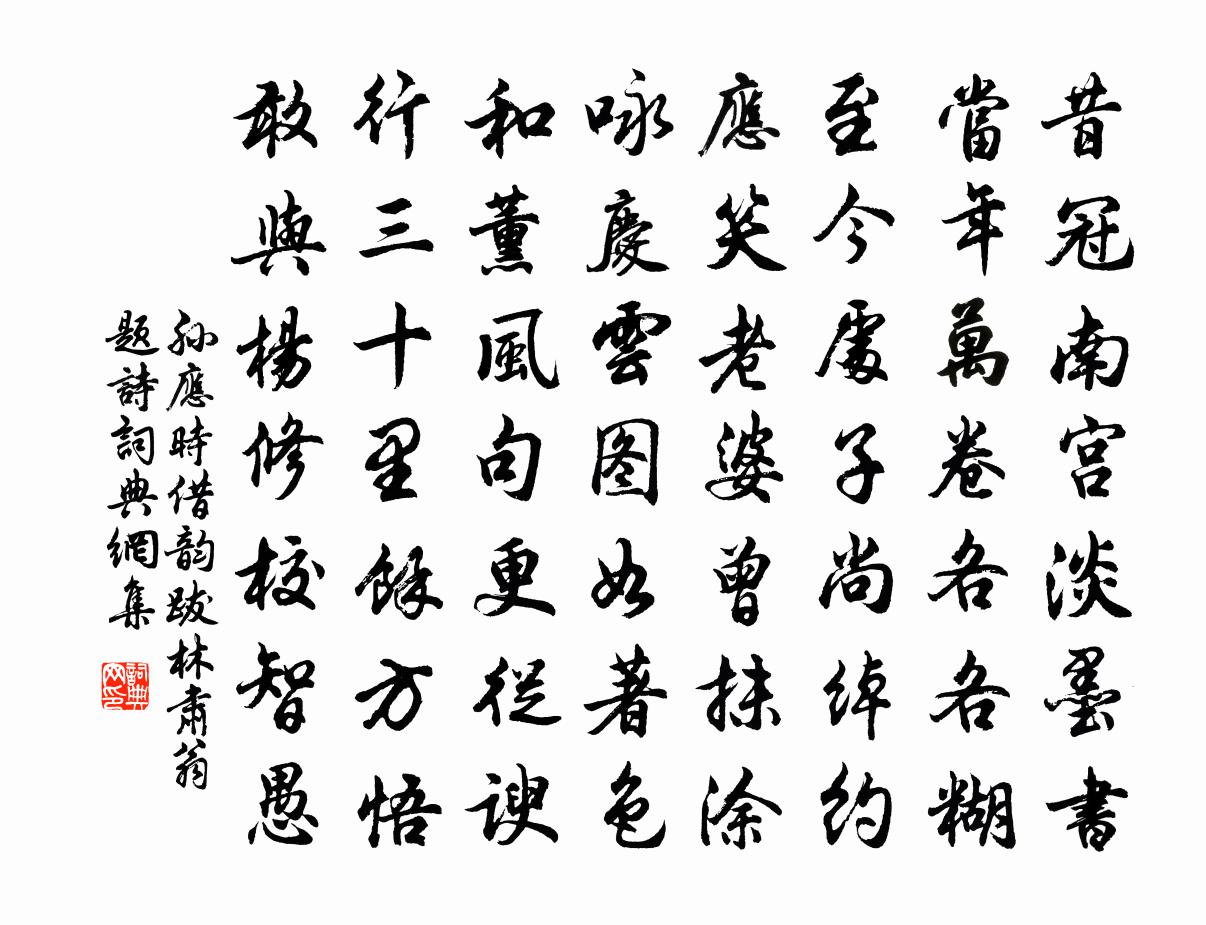 昔冠南宫淡墨書
當年萬卷各各糊
至今處子尚綽約
應笑老婆曾抹涂
咏慶雲图如著色
和薰風句更從諛
行三十里餘方悟
敢與楊修校智愚
孙應時借韵跋林肃翁
题詩詞典網集
詞典网印